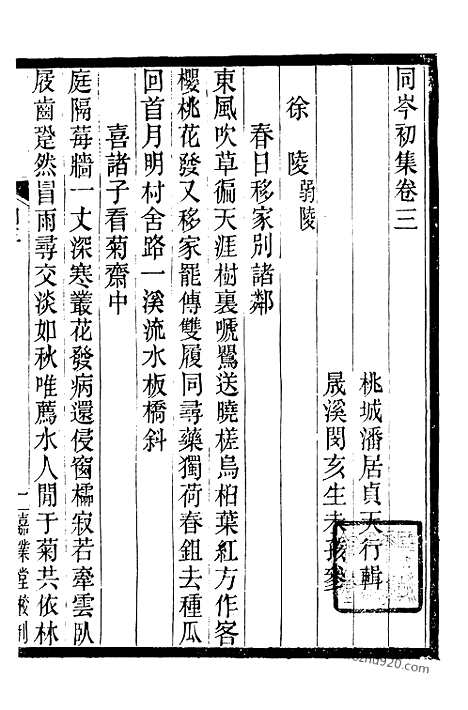 同岑初集卷三
桃城潘居貞天行輯
晟溪閔亥生未孩參
徐陵弱陵
春日移家別諸鄰
東風吹草徧天涯樹裏嗁鶯送曉槎烏桕葉紅方作客
櫻桃花發又移家罷傳雙履同尋藥獨荷春鉏去種瓜
回首月明村舍路一溪流水板橋斜
喜諸子看菊齋中
庭隔莓牆一丈深寒叢花發病還侵窗櫺寂若牽雲臥
屐齒跫然冒雨尋交淡如秋唯薦水人閒于菊共依林
嘉業堂校刊